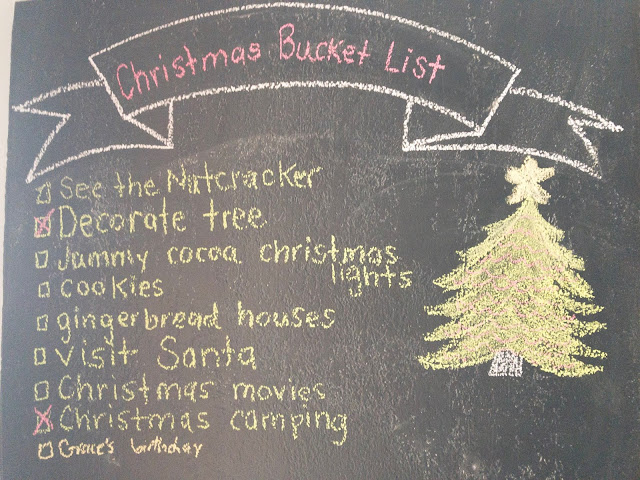 Christmas Bucket List
See the Nutcracker
Decorate tree
Jammy cocoa christmas
lights
cookies
gingerbread houses
visit Santa
Christmas movies
Christmas camping
Grace's birthday